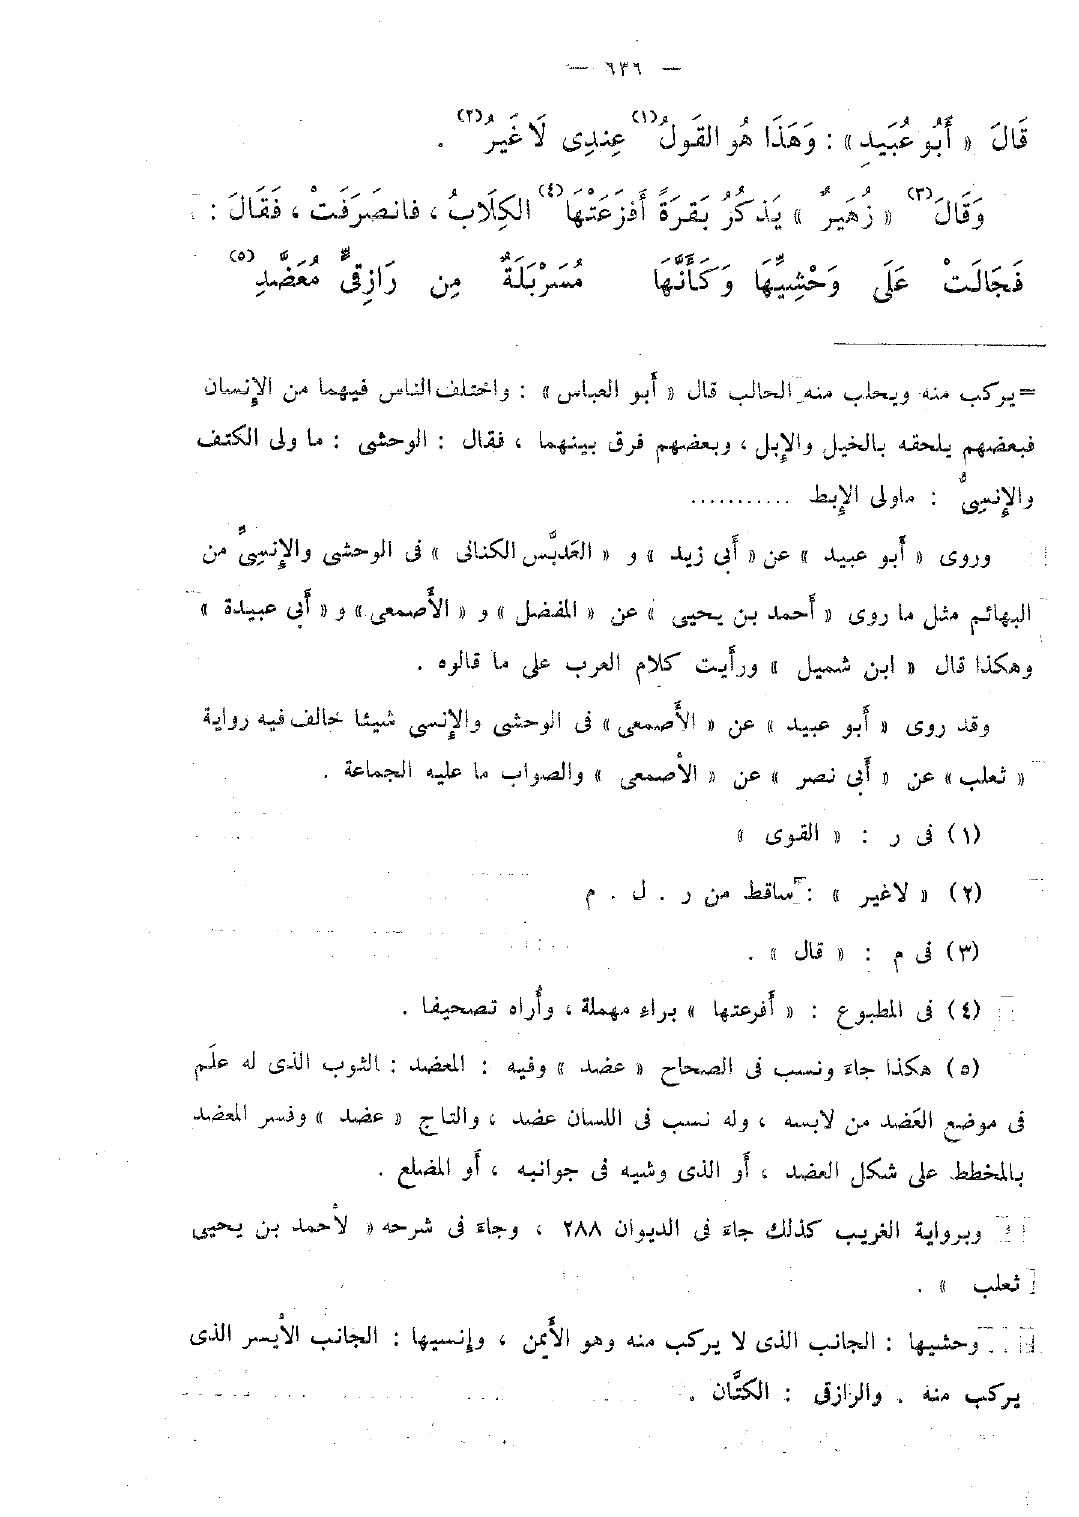 — ٦٣٦ —
قَالَ « أَبُو عُبَيدٍ » : وَهَذَا هُو القَولُ(١) عِندِى لَا غَيرُ(٢) .
وَقَالَ(٣) « زُهَيرٌ » يَذكُرُ بَقرَةً أَفزَعَتْهَا(٤) الكِلَابُ ، فانصَرَفَتْ ، فَقَالَ :
فَجَالَتْ عَلَى وَحْشِيِّهَا وَكَأَنَّهَا مُسَرْبَلَةٌ مِن رَازِقِىٍّ مُعَضَّدِ(٥)
= يركب منه ويحلب منه الحالب قال « أبو العباس » : واختلف الناس فيهما من الإنسان
فبعضهم يلحقه بالخيل والإبل ، وبعضهم فرق بينهما ، فقال : الوحشى : ما ولى الكتف
والإنسِىُّ : ماولى الإبط ...........
وروى « أبو عبيد » عن « أبى زيد » و « العَدبَّس الكنانى » فى الوحشى والإنسِىِّ من
البهائم مثل ما روى « أحمد بن يحيى » عن « المفضل » و « الأصمعى » و « أبى عبيدة »
وهكذا قال « ابن شميل » ورأيت كلام العرب على ما قالوه .
وقد روى « أبو عبيد » عن « الأصمعى » فى الوحشى والإنسى شيئا خالف فيه رواية
« ثعلب » عن « أبى نصر » عن « الأصمعى » والصواب ما عليه الجماعة .
(١) فى ر : « القوى »
(٢) « لاغير » : ساقط من ر . ل . م
(٣) فى م : « قال » .
(٤) فى المطبوع : « أفرعتها » براء مهملة ، وأُراه تصحيفا .
(٥) هكذا جاء ونسب فى الصحاح « عضد » وفيه : المعضد : الثوب الذى له علَم
فى موضع العَضد من لابسه ، وله نسب فى اللسان عضد ، والتاج « عضد » وفسر المعضد
بالمخطط على شكل العضد ، أو الذى وشيه فى جوانبه ، أو المضلع .
وبرواية الغريب كذلك جاء فى الديوان ٢٨٨ ، وجاء فى شرحه « لأحمد بن يحيى
ثعلب » .
وحشيها : الجانب الذى لا يركب منه وهو الأيمن ، وإنسيها : الجانب الأيسر الذى
يركب منه . والرازقى : الكتَّان .